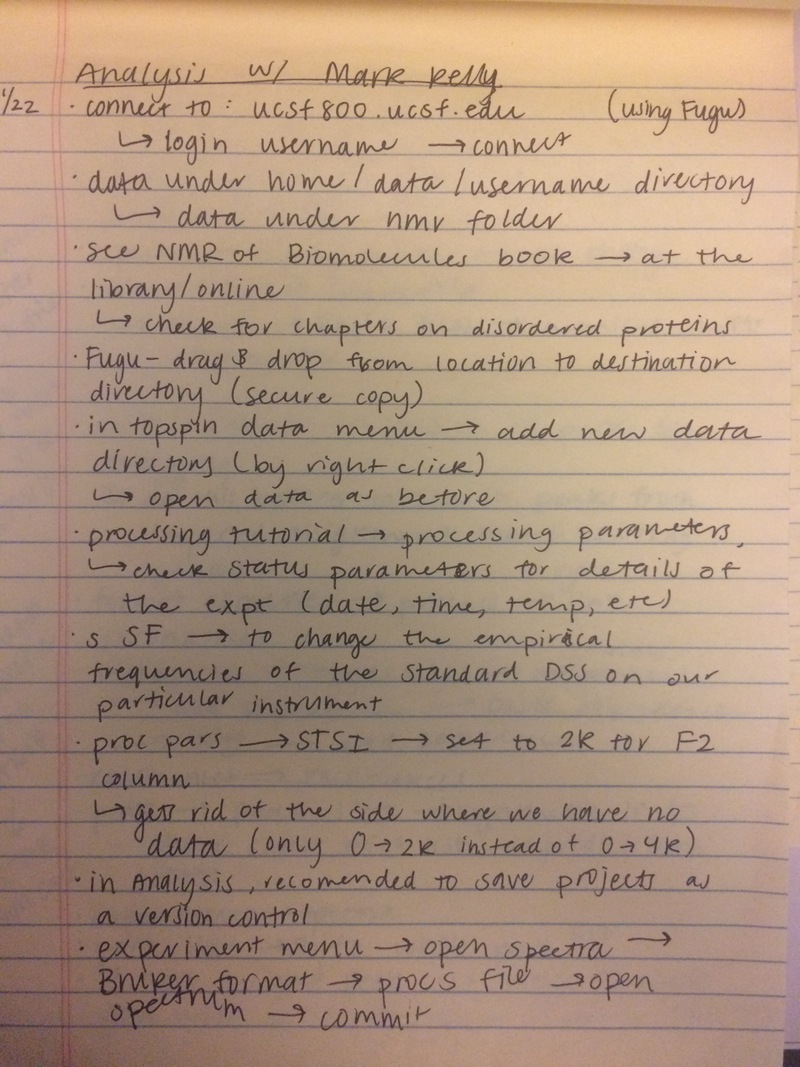 Analysis w/ Mark Kelly
1/22 · connect to: ucsf800.ucsf.edu (using Fugu)
↳ login username → connect
· data under home/data/username directory
↳ data under nmr folder
· see NMR of Biomolecules book → at the
library/online
↳ check for chapters on disordered proteins
· Fugu - drag & drop from location to destination
directory (secure copy)
· in topspin data menu → add new data
directory (by right click)
↳ open data as before
· processing tutorial → processing parameters,
↳ check status parameters for details of
the expt (date, time, temp, etc)
· s SF → to change the empirical
frequencies of the standard DSS on our
particular instrument
· proc pars → STSI → set to 2k for F2
column
↳ gets rid of the side where we have no
data (only 0→2k instead of 0→4k)
· in Analysis, recomended to save projects as
a version control
· experiment menu → open spectra →
Bruker format → procs file → open
spectrum → commit